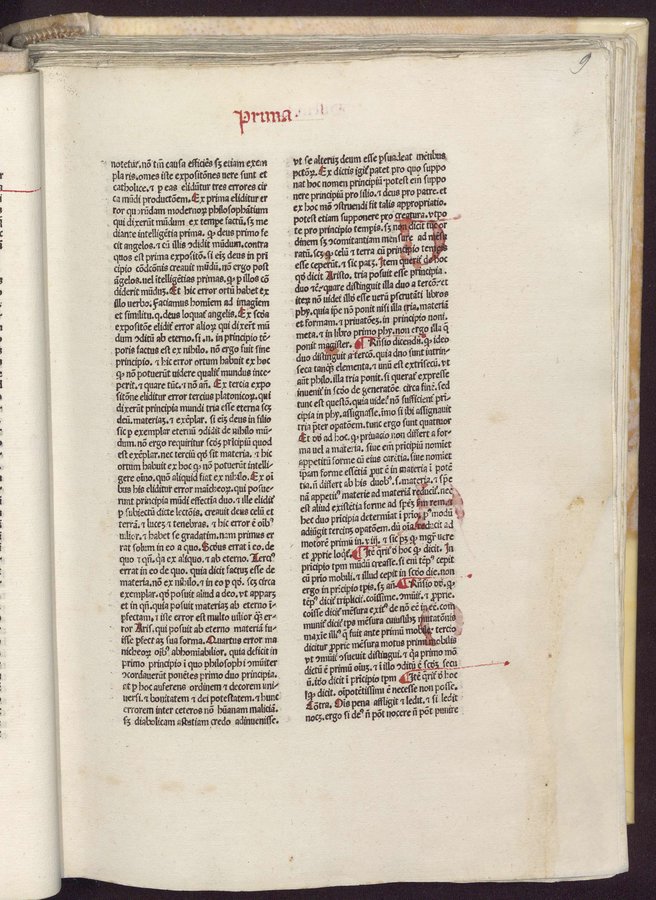 9
Prima
notetur. nō tm̄ causa efficiēs sꝫ etiam exem
plaris. omes iste expositōnes vere sunt et
catholice. ⁊ p eas elidūtur tres errores cir
ca mūdi productōem. Ex prima eliditur er
ror qu⁊rūdam modernoꝝ philosophātium
qui dixerūt mūdum ex tempe factū. sꝫ me
diante intelligētia prima. ꝙ deus primo fe
cit angelos. ⁊ cū illis ɔdidit mūdum. contra
quos est prima expositō. si eīs deus in pri
cipio cōdcōnis creauit mūdū. nō ergo post
āgelos. vel ītelligētias primas. ꝙ p illos cō
diderit mūdum. Et hic error ortū habet ex
illo verbo. Faciamus homīem ad imagīem
et similitu. ꝗ. deus loquat̄ angelis. Ex scđa
expositōe elidit̄ error alioꝝ qui dixerūt mū
dum ɔditū ab eterno. si .n. in principio tē-
poris factus est ex nihilo. nō ergo fuit sine
principio. ⁊ hic error ortum habuit ex hoc
ꝙ nō potuerūt videre qualit̄ mundus ince-
perit. ⁊ quare tūc. ⁊ nō añ. Ex tercia expo
sitōne eliditur error tercius platonicoꝝ. qui
dixerūt principia mundi tria esse eterna scꝫ
deū. materiaꝫ. ⁊ exēplar. si eīs deus in filio
sic p exemplar eternū ɔdidit de nihilo mū-
dum. nō ergo requiritur scꝫ pricipiū quod
est exēplar. nec terciū qđ sit materia. ⁊ hic
ortum habuit ex hoc ꝙ nō potuerūt intelli-
gere oīno. quō aliquid fiat ex nihilo. Ex oī
bus his eliditur error maīcheoꝝ. qui posue-
runt principia mūdi effectīa duo. ⁊ ille elidit̄
p subiectū dicte lectōis. creauit deus celū et
terrā. ⁊ luceꝫ ⁊ tenebras. ⁊ hic error ē oībꝰ
vilior. ⁊ habet se gradatim. nam primus er
rat solum in eo a quo. Scđus errat ī eo. de
quo ⁊ qn̄. qꝛ ex aliquo. ⁊ ab eterno. Terciꝰ
errat in eo de quo. quia dicit factuꝫ esse de
materia. nō ex nihilo. ⁊ in eo p qđ. scꝫ circa
exemplar. qđ posuit aliud a deo. vt apparꝫ
et in qn̄. quia posuit materiaꝫ ab eterno ī-
pfectam. ⁊ iste error est multo vilior qꝫ er-
ror Aris. qui posuit ab eterno materiā fu-
isse pfectaꝫ sua forma. Quartus error ma
nicheoꝝ oībꝰ abhomīabilior. quia deficit in
primo principio ī quo philosophi ɔmūiter
ɔcordauerūt ponētes primo duo principia.
at p hoc auferens ordinem ⁊ decorem uni
uersi. ⁊ bonitatem ⁊ dei potestatem. ⁊ hunc
errorem inter ceteros nō hūanam maliciā.
sꝫ diabolicam astutiam credo adinuenisse.
vt se alteruꝫ deum esse psuadeat mētibus
pctōꝝ. Ex dictis igit̄ patet pro quo suppo
nat hoc nomen principiū. potest eīm suppo
nere principiū pro filio. ⁊ deus pro patre. et
ex hoc mō ɔstruendi fit talis appropriatio.
potest etiam supponere pro creatura. vtpo
te pro principio tempis. sꝫ nō dicit tūc or
dinem sꝫ ɔcomitantiam mensure ad mēsu
ratū. scꝫ ꝙ celū ⁊ terra cū principio tempis
esse ceperūt. ⁊ sic patꝫ. Item querit̄ de hoc
qđ dicit Aristo. tria posuit esse principia.
duo ⁊cꝫ. quare distinguit illa duo a terco. et
iteꝝ nō videt̄ illđ esse verū pscrutāti libros
phy. quia ipe nō ponit nisi illa tria. materiā
et formam. ⁊ priuatōeꝫ. in principio noni.
meta. ⁊ in libro primo phy. non ergo illa ꝗ
ponit magister. Rñsio dicendū. ꝙ ideo
duo distinguit a tercō. quia dno sunt intrin-
seca tanꝙ elementa. ⁊ unū est extrisecū. vt
aūt philo. illa tria ponit. si querat̄ expresse
inuenit̄ in scđo de generatōe. circa finē. sed
tunc est questō. quia videt̄ nō sufficient̄ pri-
cipia in phy. assignasse. imo si ibi assignauit
tria preter opatōem. tunc ergo sunt quatuor
Et qđ ad hoc. ꝙ priuatio non differt a for-
ma vel a materia. siue eīm pricipiū nomīet
appetitū forme cū eius carētia. siue nomīet
ipam forme essētiā put ē in materia ī potē
tia. ñ differt ab his duobꝰ. s. materia. ⁊ spe
nā appetitꝰ materie ad materiā reducit̄. nec
est aliud existētia forme ad speꝫ siue rem. ⁊
hec duo pricipia determīat ī prioꝝ. p modū
adiūgit tercius opatōem. dū oīa reducit ad
motorē primū in. v. iij. ⁊ sic pꝫ ꝙ mgr̄ vere
et xprie loqt̄. Itē qrit̄ ð hoc ꝙ dicit. In
pricipio tpm mūdū creasse. si eni tepꝰ cepit
cū prio mobili. ⁊ illud cepit in scđo die. non
ergo in prīcipio tpis. sꝫ añ. Rñsio đđ. ꝙ
tēpꝰ dicit̄ triplicit̄. coissime. ɔmūit̄. ⁊ xprie.
coissime dicit̄ mēsura exit̄ꝰ de nō eē in eē. com
munit̄ dicit̄ tps mēsura cuiuslibꝫ mutatōnis
maxie illiꝰ q̄ fuit ante primū mobile. tercio
dicitur xprie mēsura motus primi mobilis
vt ɔmūit̄ ɔsueuit distingui. ⁊ qꝛ primo mō
dictū ē primū oīuꝫ. ⁊ ī illo ɔditū ē scꝫ secu
ū. iđo dicit ī pricipio tpm Itē qrit̄ ð hoc
ꝙ dicit. oīpotētissimi ē necesse non posse.
Cōtra. Oīs pena affligit ⁊ ledit. ⁊ si ledit
nocꝫ. ergo si deꝰ ñ pōt nocere ñ pōt punire